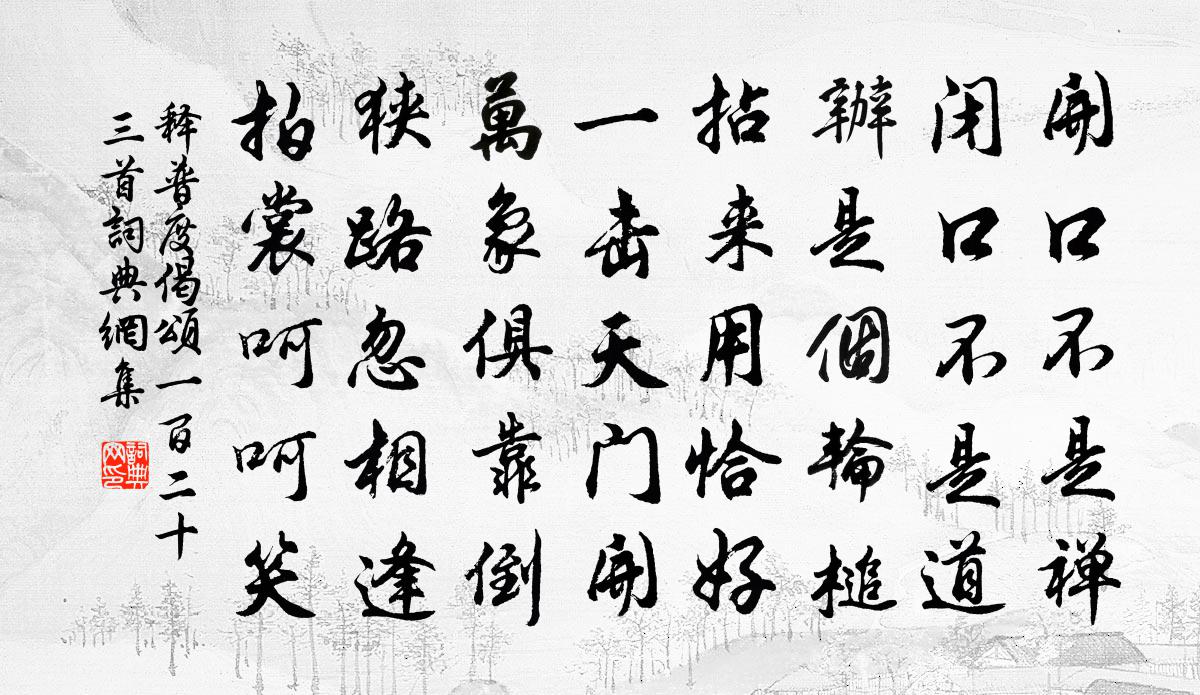 開口不是禅
闭口不是道
辦是個輪槌
拈来用恰好
一击天门開
萬象俱靠倒
狭路忽相逢
拍裳呵呵笑
释普度偈頌一百二十
三首詞典網集
詞典网印